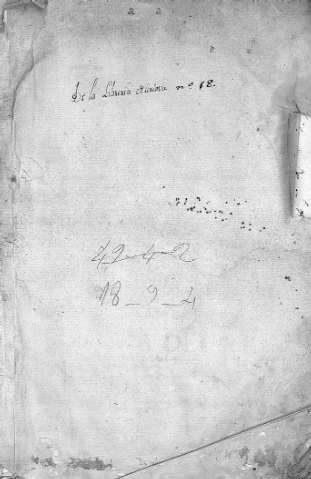 De la Libreria nº 18.
42-4-2
18-9-4